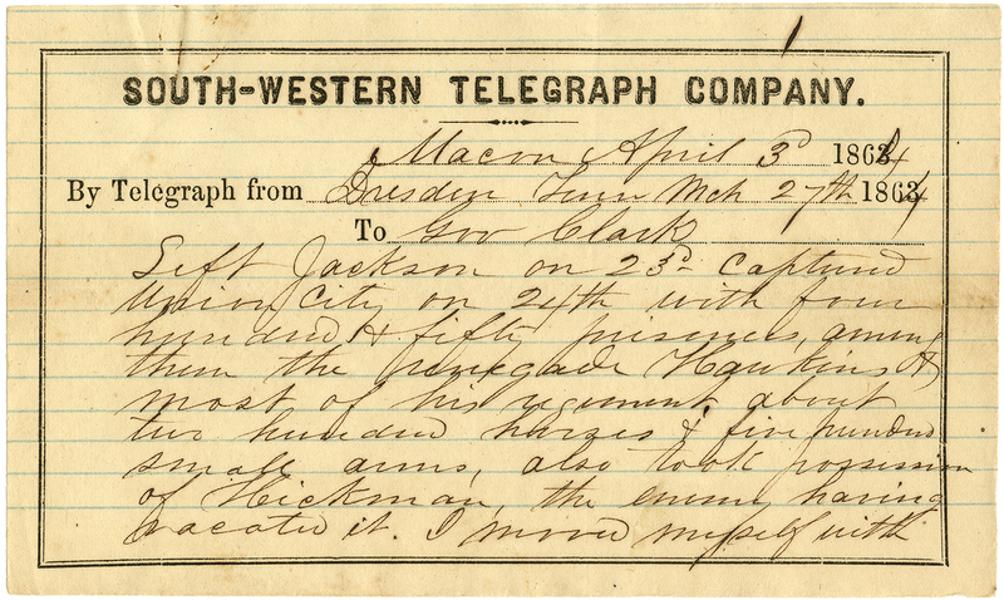 SOUTH-WESTERN TELEGRAPH COMPANY.
Macon April 3d 1864
By Telegraph from Dresden Tenn Mch 27th 1864
To Gov Clark
Left Jackson on 23d captured
Union City on 24th with four
hundred & fifty prisoners, among
them the renegade Hawkins &
most of his regiment, about
two hundred horses & five hundred
small arms, also took possession
of Hickman, the enemy having
vacated it. I moved myself with